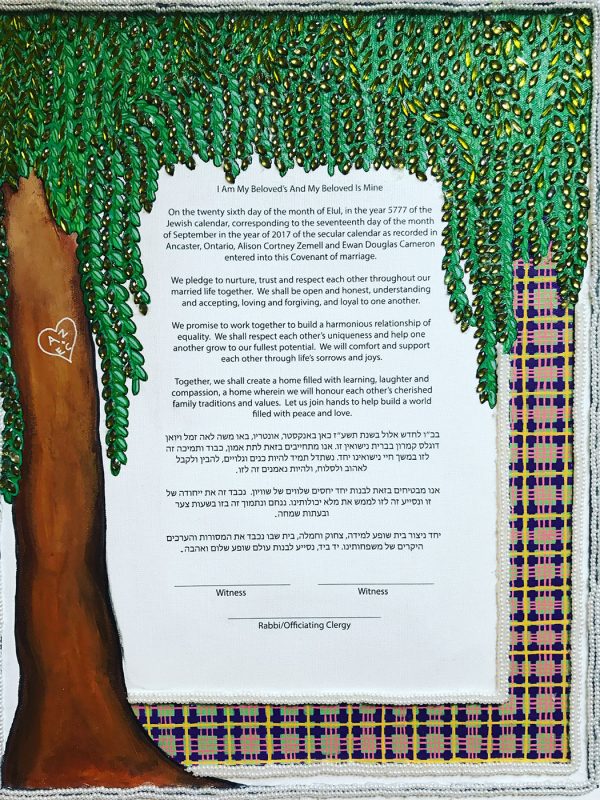 I Am My Beloved's And My Beloved Is Mine
On the twenty sixth day of the month of Elul, in the year 5777 of the
Jewish calendar, corresponding to the seventeenth day of the month
of September in the year of 2017 of the secular calendar as recorded in
Ancaster, Ontario, Alison Cortney Zemell and Ewan Douglas Cameron
entered into this Covenant of marriage.
We pledge to nurture, trust and respect each other throughout our
married life together. We shall be open and honest, understanding
and accepting, loving and forgiving, and loyal to one another.
We promise to work together to build a harmonious relationship of
equality. We shall respect each other's uniqueness and help one
another grow to our fullest potential. We will comfort and support
each other through life's sorrows and joys.
Together, we shall create a home filled with learning, laughter and
compassion, a home wherein we will honour each other's cherished
family traditions and values. Let us join hands to help build a world
filled with peace and love.
בכ"ו לחדש אלול בשנת תשע"ז כאן באנקסטר, אונטריו, באו משה לאה זמל ויואן
דוגלס קמרון בברית נישואין זו. אנו מתחייבים בזאת לתת אמון, כבוד ותמיכה זה
לזו במשך חיי נישואינו יחד. נשתדל תמיד להיות כנים וגלויים, להבין ולקבל
לאהוב ולסלוח, ולהיות נאמנים זה לזו.
אנו מבטיחים בזאת לבנות יחד יחסים שלווים של שוויון. נכבד זה את ייחודה של
זו ונסייע זה לזו לממש את מלא יכולותינו. ננחם ונתמוך זה בזו בשעות צער
ובעתות שמחה.
יחד ניצור בית שופע למידה, צחוק וחמלה, בית שבו נכבד את המסורות והערכים
היקרים של משפחותינו. יד ביד, נסייע לבנות עולם שופע שלום ואהבה.
Witness Witness
Rabbi/Officiating Clergy
A Z
E C